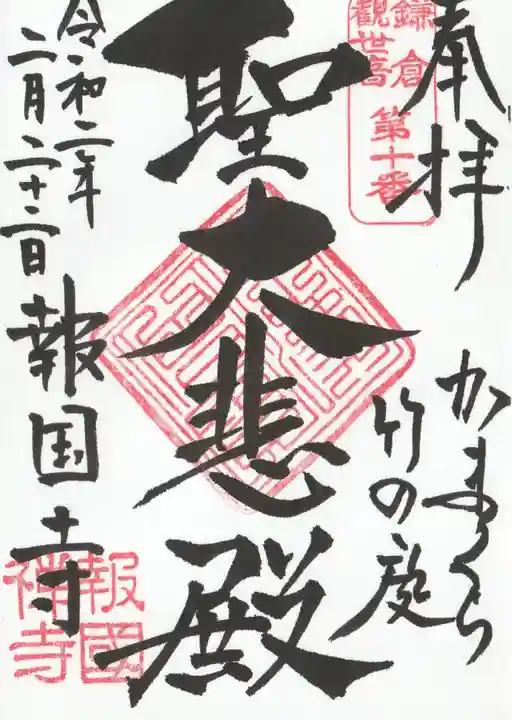 奉拝
かまくら
竹の庭
鎌倉
觀世音
第十番
聖大悲殿
令和二年
二月二十二日
報国寺
報國
禅寺